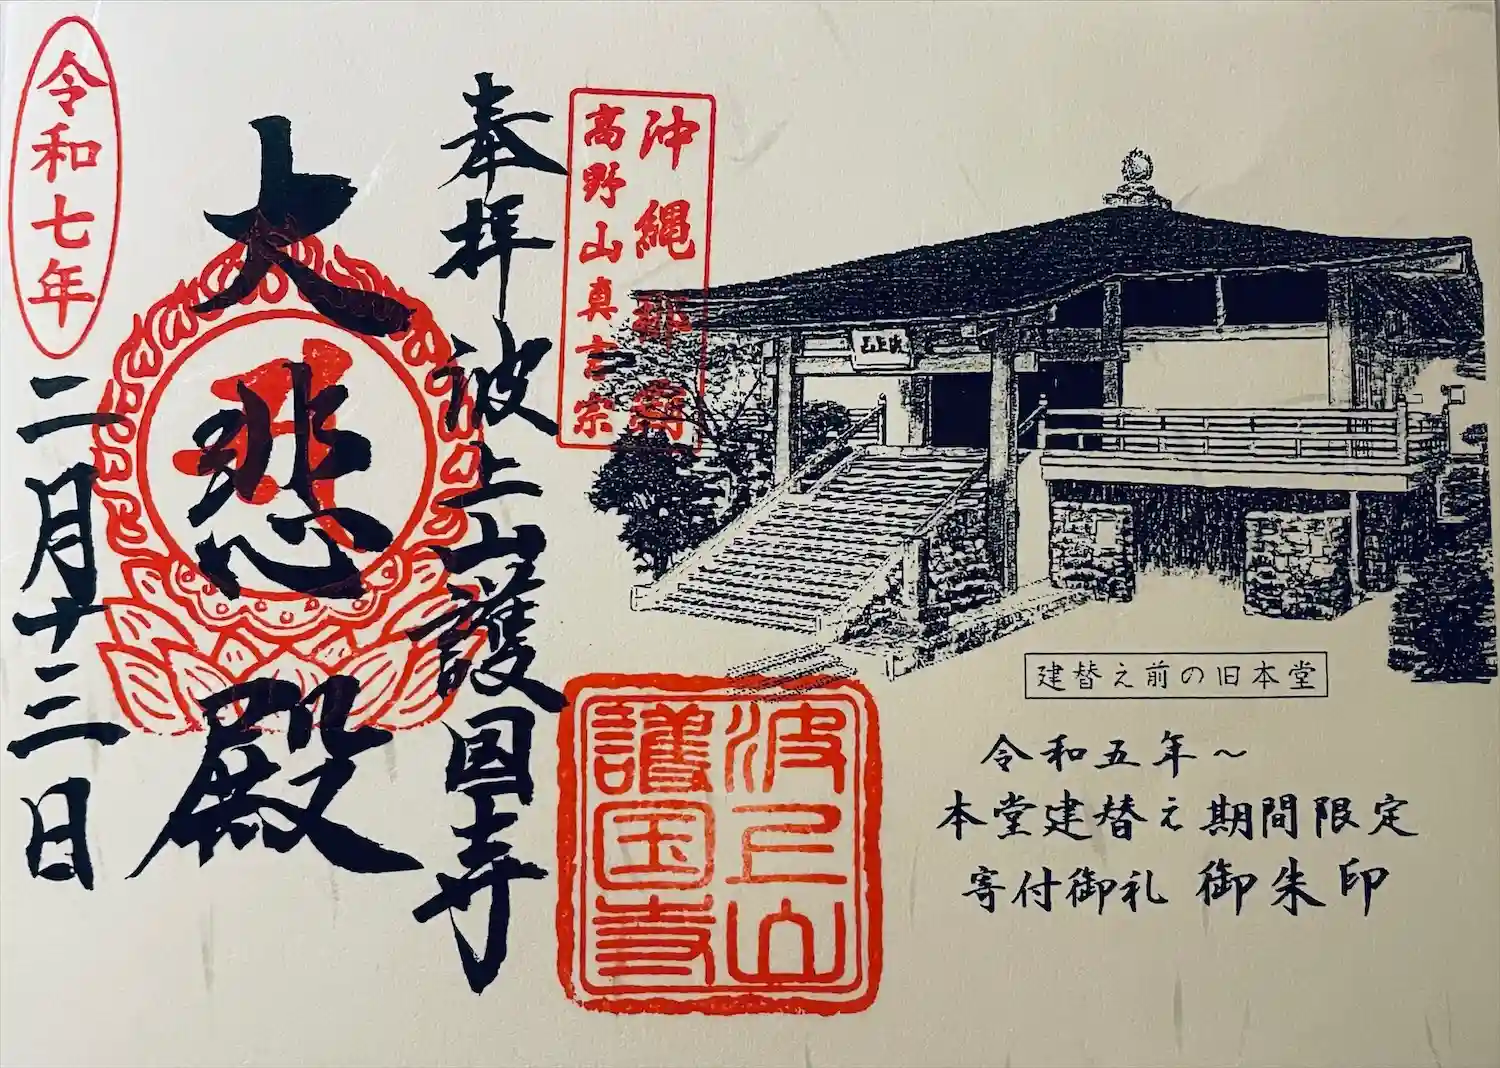 建替え前の旧本堂
令和五年～
本堂建替え期間限定
寄付御礼 御朱印
沖縄那覇
高野山真言宗
奉拝 波上山護国寺
波上山
護国寺
大悲殿
令和七年
二月十三日